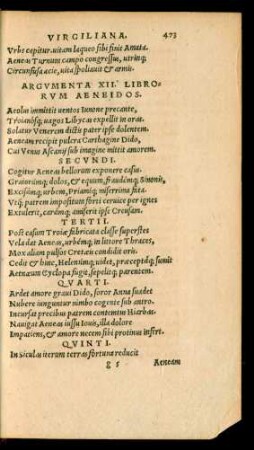 VIRGILIANA. 473
Vrbs capitur. uitam laqueo sibi finit Amata.
Aeneas Turnum campo congressus, utrinq;
Circunfusa acie, uita spoliauit & armis.
ARGVMENTA XII. LIBRO-
RVM AENEIDOS.
Aeolus immittit uentos Iunone precante,
Troianosq; uagos Libycas expellit in oras.
Solatur Venerem dictis pater ipse dolentem.
Aeneam recipit pulcra Carthagine Dido,
Cui Venus Ascanij sub imagine mittit amorem.
SECVNDI.
Cogitur Aeneas bellorum exponere casus.
Graiorumq; dolos, & equum, fraudemq; Sinonis,
Excisamq; urbem, Priamiq; miserrima fata.
Vtq; patrem impositum forti ceruice per ignes
Extulerit, caramq; amiserit ipse Creusam.
TERTII.
Post casum Troiæ fabricata classe superstes
Vela dat Aeneas, urbemq; in littore Thraces,
Mox aliam pulsos Cretæa condidit oris.
Cedit & hinc, Helenumq; uidet, præceptaq; sumit
Aetnæum Cyclopa fugit, sepelitq; parentem.
QVARTI.
Ardet amore graui Dido, soror Anna suadet
Nubere iunguntur nimbo cogente sub antro.
Incusat precibus patrem contemtus Hiarbas.
Nauigat Aeneas iussu Iouis, illa dolore
Impatiens, & amore necem sibi protinus infert.
QVINTI.
In siculas iterum terras fortuna reducit
g 5 Aeneam